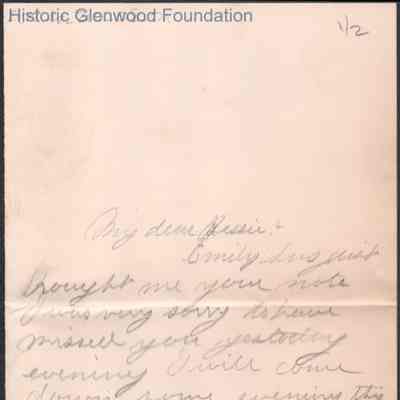 Historic Glenwood Foundation
1/2
My dear Bessie,
Emily has just
brought me your note
I was very sorry to have
missed you yesterday
evening I will come
down some evening this